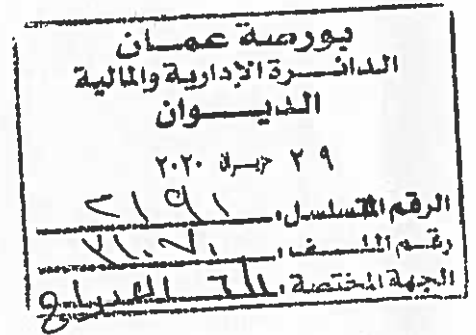 بورصة عمان
الدائرة الإدارية والمالية
الديوان
٢٩ حزيران ٢٠٢٠
الرقم المتسلسل: ٢١٩١
رقم الملف:
الجهة المختصة: